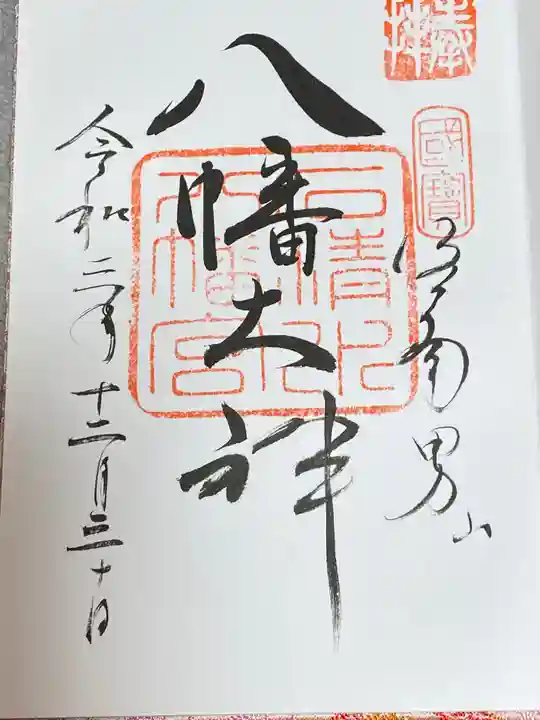 奉拝
國寶
洛南男山
石清水
八幡宮
八幡大神
令和三年十二月三十日